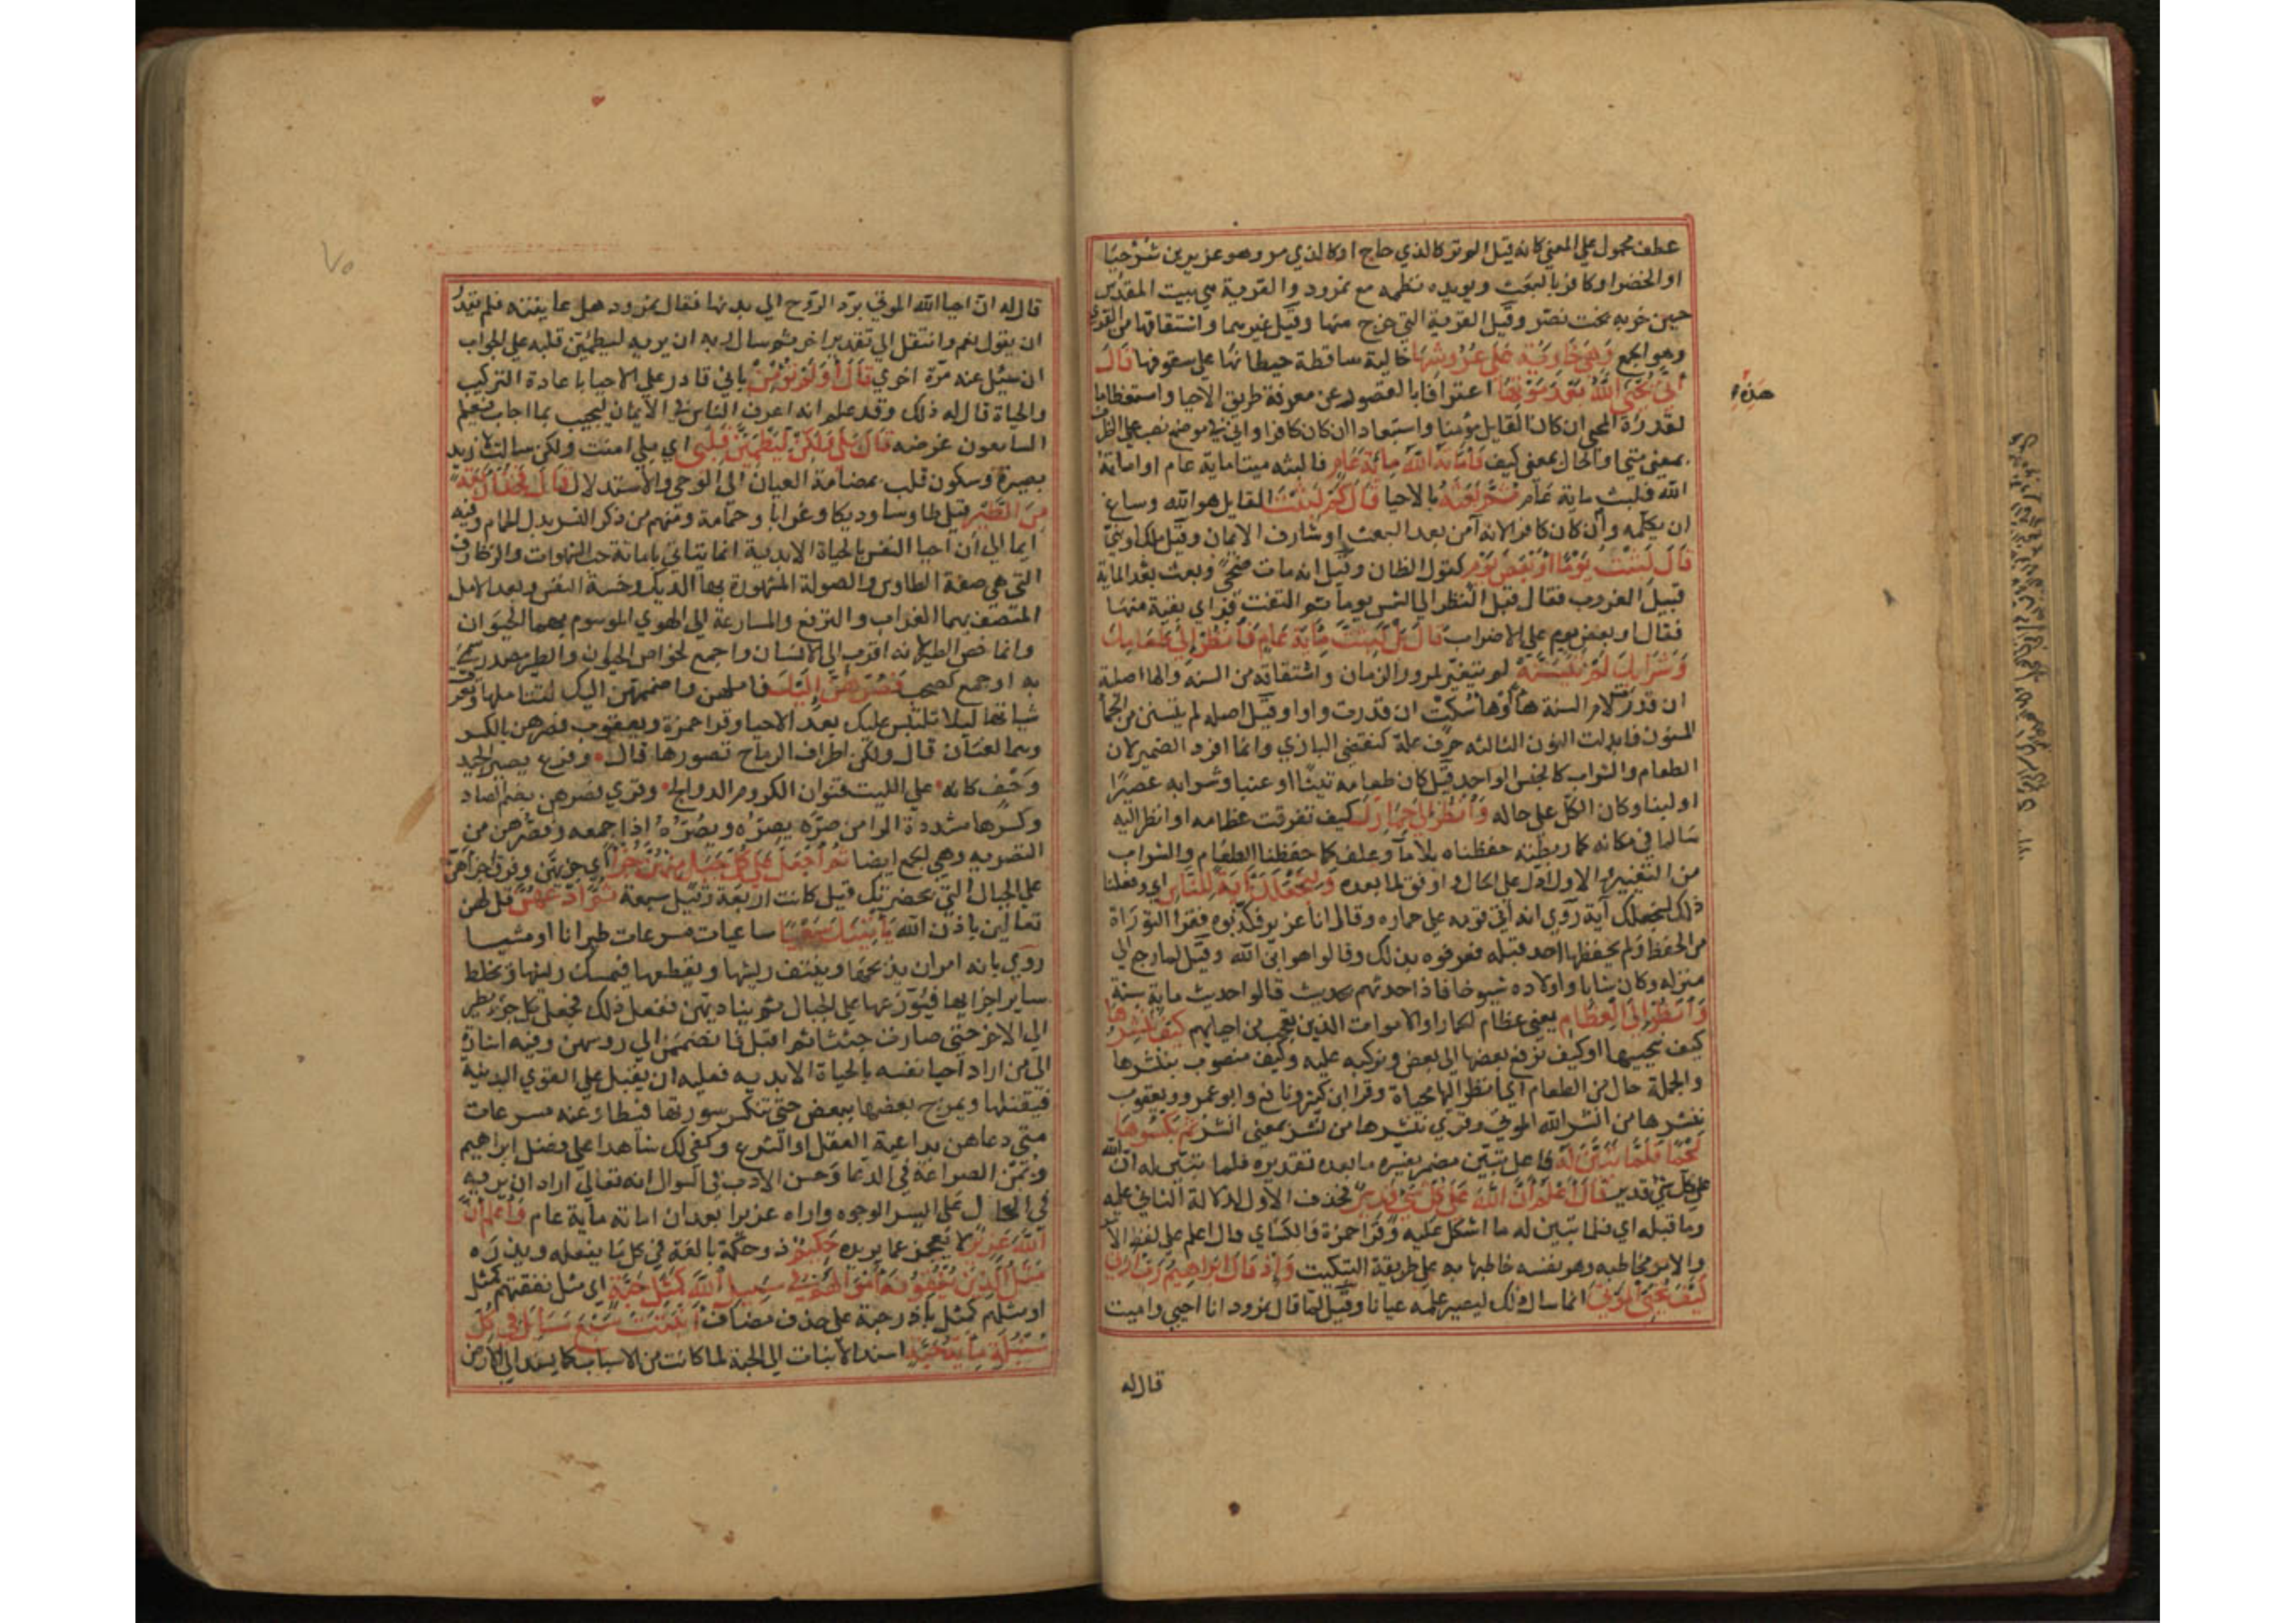 عطف محمول علي المعني كانه قيل الم تر كالذي حاج او كالذي مر وهو عزير بن شرحيا
او الخضر او كافر بالبعث ويويده نظمه مع نمرود والقرية هي بيت المقدس
حين خربه بخت نصر وقيل القرية التي خرج منها وقيل غيرهما واشتقاقها من القري
وهو الجمع وَهِيَ خَاوِيَةٌ عَلَى عُرُوشِهَا خالية ساقطة حيطانها علي سقوفها قَالَ
أَنَّى يُحْيِي اللَّهُ بَعْدَ مَوْتِهَا اعترافا بالقصور عن معرفة طريق الاحيا واستعظاما
هَذِهِ
لقدرة المحي ان كان القايل مؤمنا واستبعادا ان كان كافرا واني في موضع نصب علي الظرف
بمعني متي او الحال بمعني كيف فَأَمَاتَهُ اللَّهُ مِائَةَ عَامٍ فالبثه ميتا ماية عام او اماتة
الله فلبث ماية عام ثُمَّ بَعَثَهُ بالاحيا قَالَ كَمْ لَبِثْتَ القايل هو الله وساغ
ان يكلمه وان كان كافرا لانه آمن بعد البعث او شارف الايمان وقيل ملك او نبي
قَالَ لَبِثْتُ يَوْمًا أَوْ بَعْضَ يَوْمٍ كقول الظان وقيل انه مات ضحي وبعث بعد الماية
قبيل الغروب فقال قبل النظر الي الشمس يوما ثم التفت فراي بقية منها
فقال او بعض يوم علي الاضراب قَالَ بَلْ لَبِثْتَ مِايَةَ عَامٍ فَانْظُرْ إِلَى طَعَامِكَ
وَشَرَابِكَ لَمْ يَتَسَنَّهْ لم يتغير بمرور الزمان واشتقاقه من السنه والها اصلية
ان قدر لام السنة ها وها سكت ان قدرت واوا وقيل اصله لم يتسنن من الحمأ
المسنون فابدلت النون الثالثه حرف علة كتقضي البازي وانما افرد الضمير لان
الطعام والشراب كالجنس الواحد قيل كان طعامه تينا او عنبا وشرابه عصيرا
او لبنا وكان الكل علي حاله وَانْظُرْ إِلَى حِمَارِكَ كيف تفرقت عظامه او انظر اليه
سالما في مكانه كما ربطته حفظناه بلا ما وعلف كما حفظنا الطعام والشراب
من التغيير والاول ادل علي الحال واوفق لما بعده وَلِنَجْعَلَكَ آيَةً لِلنَّاسِ اي وفعلنا
ذلك لنجعلك آية روي انه اتي قومه علي حماره وقال انا عزير فكذبوه فقرا التوراة
من الحفظ ولم يحفظها احد قبله فعرفوه بذلك وقالوا هو ابن الله وقيل لما رجع الي
منزله وكان شابا واولاده شيوخا فاذا حدثهم بحديث قالوا حديث ماية سنة
وَانْظُرْ إِلَى الْعِظَامِ يعني عظام الحمار او الاموات الذين تعجب من احيايهم كَيْفَ نُنْشِرُهَا
كيف نحييها او كيف نرفع بعضها الي بعض ونركبه عليه وكيف منصوب بننشزها
والجملة حال من العظام اي انظر اليها محياة وقرا ابن كثير ونافع وابو عمرو ويعقوب
ننشرها من انشر الله الموتي وقري ننشرها من نشر بمعني انشر ثُمَّ نَكْسُوهَا
لَحْمًا فَلَمَّا تَبَيَّنَ لَهُ فاعل تبين مضمر يفسره ما بعده تقديره فلما تبين له ان الله
علي كل شي قدير قَالَ أَعْلَمُ أَنَّ اللَّهَ عَلَى كُلِّ شَيْءٍ قَدِيرٌ فحذف الاول لدلالة الثاني عليه
وما قبله اي فلما تبين له ما اشكل عليه وقرا حمزة والكساي قال اعلم علي لفظ الامر
والامر مخاطبه وهو نفسه خاطبها به علي طريقة التبكيت وَإِذْ قَالَ إِبْرَاهِيمُ رَبِّ أَرِنِي
كَيْفَ تُحْيِي الْمَوْتَى انما سال ذلك ليصير علمه عيانا وقيل لما قال نمرود انا احيي واميت
قال له
٧٥
قال له ان احيا الله الموتي برد الروح الي بدنها فقال نمرود هل عاينته فلم يقدر
ان يقول نعم وانتقل الي تقدير اخر ثم سال ربه ان يريه ليطمئن قلبه علي الجواب
ان سئل عنه مرة اخري قَالَ أَوَلَمْ تُؤْمِنْ باني قادر علي الاحيا باعادة التركيب
والحياة قال له ذلك وقد علم انه اعرف الناس في الايمان ليجيب بما اجاب فيعلم
السامعون غرضه قَالَ بَلَى وَلَكِنْ لِيَطْمَئِنَّ قَلْبِي اي بلي امنت ولكن سالت لازيد
بصيرة وسكون قلب بمضامة العيان الي الوحي والاستدلال قَالَ فَخُذْ أَرْبَعَةً
مِنَ الطَّيْرِ قيل طاوسا وديكا وغرابا وحمامة ومنهم من ذكر النسر بدل الحمام وفيه
ايما الي ان احيا النفس بالحياة الابدية انما يتاتي باماتة حب الشهوات والزخارف
التي هي صفة الطاوس والصولة المشهورة بها الديك وخسة النفس وبعد الامل
المتصف بهما الغراب والترفع والمسارعة الي الهوي الموسوم بهما الحيوان
وانما خص الطير لانه اقرب الي الانسان واجمع لخواص الحيوان والطير مصدر سمي
به او جمع كصحب فَصُرْهُنَّ إِلَيْكَ فاملهن واضممهن اليك لتتاملها وتعرف
شياتها ليلا تلتبس عليك بعد الاحيا وقرا حمزة ويعقوب فصرهن بالكسر
وهما لغتان قال ولكن اطراف الرماح تصورها قال وفرع يصير الجيد
وحف كانه علي الليت قنوان الكروم الدوالح وقري فصرهن بضم الصاد
وكسرها مشددة الرا من صره يصره ويصره اذا جمعه وفصرهن من
التصرية وهي الجمع ايضا ثُمَّ اجْعَلْ عَلَى كُلِّ جَبَلٍ مِنْهُنَّ جُزْءًا اي جزيهن وفرق اجزاهن
علي الجبال التي بحضرتك قيل كانت اربعة وقيل سبعة ثُمَّ ادْعُهُنَّ قل لهن
تعالين باذن الله يَأْتِينَكَ سَعْيًا ساعيات مسرعات طيرانا او مشيا
روي بانه امر ان يذبحها وينتف ريشها ويقطعها فيمسك ريسها ويخلط
ساير اجزايها فيوزعها علي الجبال ثم يناديهن ففعل ذلك فجعل كل جز يطير
الي الاخر حتي صارت جثثا ثم اقبلن فانضممن الي روسهن وفيه اشارة
الي من اراد احيا نفسه بالحياة الابديه فعليه ان يقبل علي القوي البدنية
فيقتلها ويمزج بعضها ببعض حتي تنكسر سورتها فيطاوعنه مسرعات
متي دعاهن بداعية العقل او الشرع وكفي لك شاهدا علي فضل ابراهيم
ويمن الضراعة في الدعا وحسن الادب في السوال انه تعالي اراد ان يريه
في الحال علي ايسر الوجوه واراه عزيرا بعد ان اماته ماية عام وَاعْلَمْ أَنَّ
اللَّهَ عَزِيزٌ لا يعجز عما يريده حَكِيمٌ ذو حكمة بالغة في كل ما يفعله ويذره
مَثَلُ الَّذِينَ يُنْفِقُونَ أَمْوَالَهُمْ فِي سَبِيلِ اللَّهِ كَمَثَلِ حَبَّةٍ اي مثل نفقتهم كمثل
او مثلهم كمثل باذر حبة علي حذف مضاف أَنْبَتَتْ سَبْعَ سَنَابِلَ فِي كُلِّ
سُنْبُلَةٍ مِايَةُ حَبَّةٍ اسند الانبات الي الحبة لما كانت من الاسباب كما يسند الي الارض